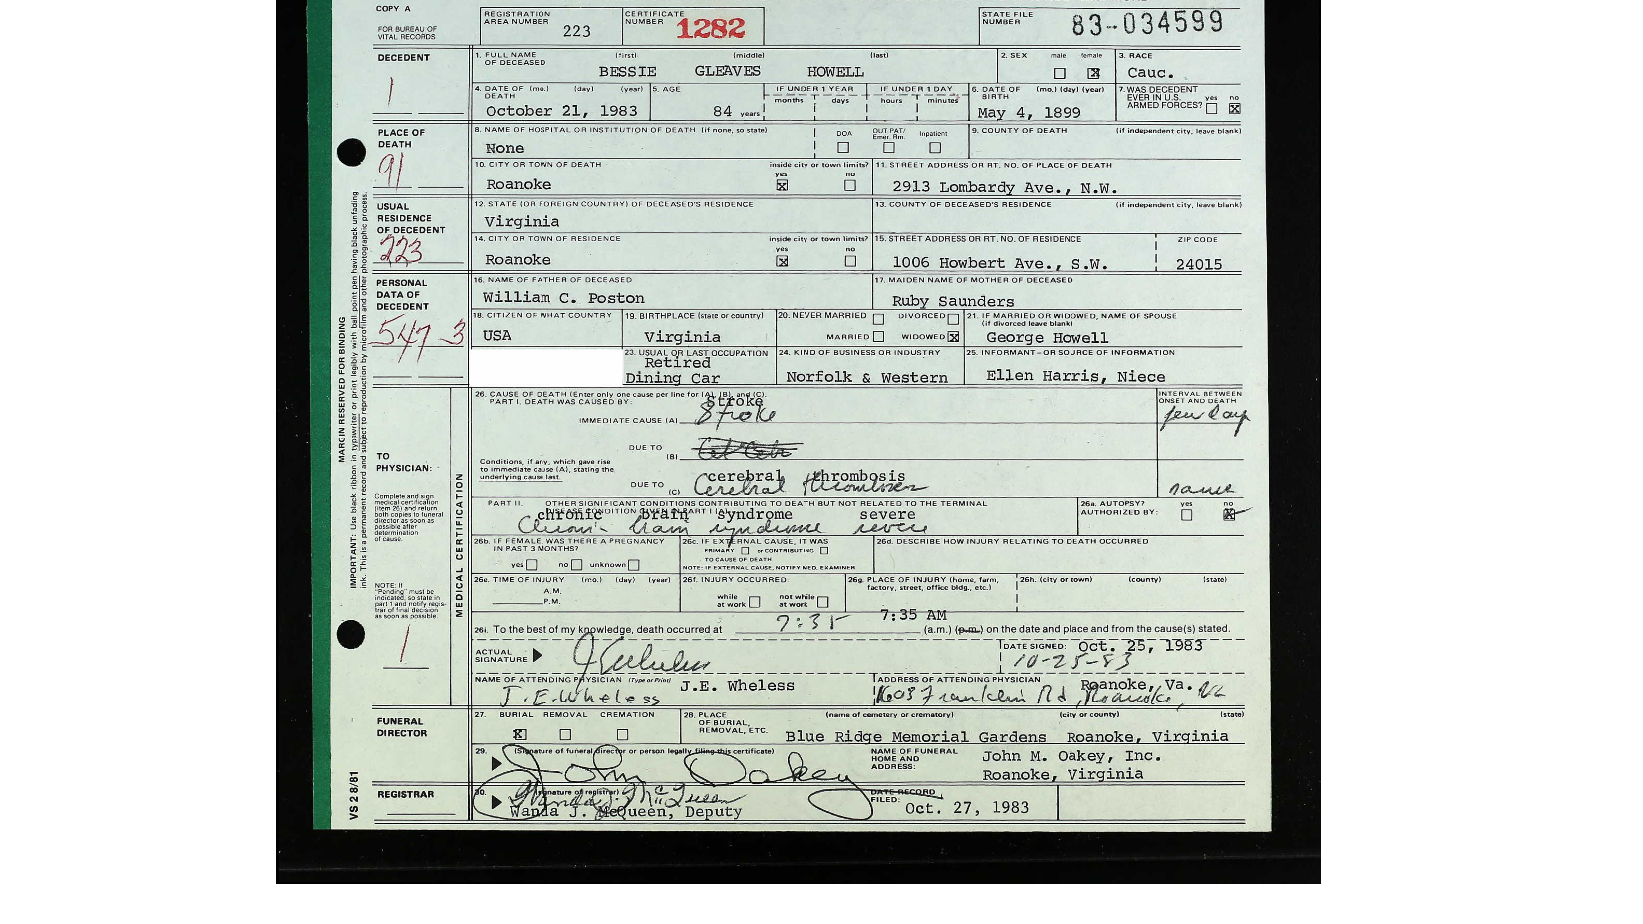 COPY A
FOR BUREAU OF
VITAL RECORDS
REGISTRATION
AREA NUMBER 223
CERTIFICATE
NUMBER 1282
STATE FILE
NUMBER 83-034599
DECEDENT
1
1. FULL NAME (first) (middle) (last)
OF DECEASED
BESSIE GLEAVES HOWELL
2. SEX male female
3. RACE
Cauc.
4. DATE OF (mo.) (day) (year)
DEATH
October 21, 1983
5. AGE
84 years
IF UNDER 1 YEAR
months days
IF UNDER 1 DAY
hours minutes
6. DATE OF (mo.) (day) (year)
BIRTH
May 4, 1899
7. WAS DECEDENT
EVER IN U.S.
ARMED FORCES? yes no
PLACE OF
DEATH
91
8. NAME OF HOSPITAL OR INSTITUTION OF DEATH (if none, so state)
None
DOA OUT PAT/ Emer. Rm. Inpatient
9. COUNTY OF DEATH (if independent city, leave blank)
10. CITY OR TOWN OF DEATH inside city or town limits?
yes no
Roanoke
11. STREET ADDRESS OR RT. NO. OF PLACE OF DEATH
2913 Lombardy Ave., N.W.
USUAL
RESIDENCE
OF DECEDENT
223
12. STATE (OR FOREIGN COUNTRY) OF DECEASED'S RESIDENCE
Virginia
13. COUNTY OF DECEASED'S RESIDENCE (if independent city, leave blank)
14. CITY OR TOWN OF RESIDENCE inside city or town limits?
yes no
Roanoke
15. STREET ADDRESS OR RT. NO. OF RESIDENCE
1006 Howbert Ave., S.W.
ZIP CODE
24015
PERSONAL
DATA OF
DECEDENT
547 3
16. NAME OF FATHER OF DECEASED
William C. Poston
17. MAIDEN NAME OF MOTHER OF DECEASED
Ruby Saunders
18. CITIZEN OF WHAT COUNTRY
USA
19. BIRTHPLACE (state or country)
Virginia
20. NEVER MARRIED DIVORCED
MARRIED WIDOWED
21. IF MARRIED OR WIDOWED, NAME OF SPOUSE
(if divorced leave blank)
George Howell
23. USUAL OR LAST OCCUPATION
Retired
Dining Car
24. KIND OF BUSINESS OR INDUSTRY
Norfolk & Western
25. INFORMANT - OR SOURCE OF INFORMATION
Ellen Harris, Niece
MARGIN RESERVED FOR BINDING
IMPORTANT: Use black ribbon in typewriter or print legibly with ball point pen having black unfading
ink. This is a permanent record and subject to reproduction by microfilm and other photographic process.
TO
PHYSICIAN:
Complete and sign
medical certification
(item 26) and return
both copies to funeral
director as soon as
possible after
determination
of cause.
NOTE: If
"Pending" must be
indicated, so state in
part 1 and notify regis-
trar of final decision
as soon as possible.
1
MEDICAL CERTIFICATION
26. CAUSE OF DEATH (Enter only one cause per line for (A), (B), and (C).
PART I. DEATH WAS CAUSED BY:
Stroke
IMMEDIATE CAUSE (A) Stroke
INTERVAL BETWEEN
ONSET AND DEATH
few day
DUE TO
(B)
Conditions, if any, which gave rise
to immediate cause (A), stating the
underlying cause last.
cerebral thrombosis
DUE TO
(C) Cerebral thrombosis
same
PART II. OTHER SIGNIFICANT CONDITIONS CONTRIBUTING TO DEATH BUT NOT RELATED TO THE TERMINAL
DISEASE CONDITION GIVEN IN PART I (A)
chronic brain syndrome severe
Chronic brain syndrome severe
26a. AUTOPSY? yes
AUTHORIZED BY:
26b. IF FEMALE WAS THERE A PREGNANCY
IN PAST 3 MONTHS?
yes no unknown
26c. IF EXTERNAL CAUSE, IT WAS
PRIMARY or CONTRIBUTING
TO CAUSE OF DEATH
NOTE: IF EXTERNAL CAUSE, NOTIFY MED. EXAMINER
26d. DESCRIBE HOW INJURY RELATING TO DEATH OCCURRED
26e. TIME OF INJURY (mo.) (day) (year)
A.M.
P.M.
26f. INJURY OCCURRED
while at work not while at work
26g. PLACE OF INJURY (home, farm,
factory, street, office bldg., etc.)
26h. (city or town) (county) (state)
7:35 AM
26i. To the best of my knowledge, death occurred at 7:35 (a.m.) (p.m.) on the date and place and from the cause(s) stated.
ACTUAL
SIGNATURE
DATE SIGNED: Oct. 25, 1983
10-25-83
NAME OF ATTENDING PHYSICIAN (Type or Print) J.E. Wheless
J. E. Wheless
ADDRESS OF ATTENDING PHYSICIAN Roanoke, Va.
1608 Franklin Rd, Roanoke, Va
FUNERAL
DIRECTOR
27. BURIAL REMOVAL CREMATION
28. PLACE (name of cemetery or crematory) (city or county) (state)
OF BURIAL,
REMOVAL, ETC.
Blue Ridge Memorial Gardens Roanoke, Virginia
29. (Signature of funeral director or person legally filing this certificate)
John Oakey
NAME OF FUNERAL
HOME AND
ADDRESS:
John M. Oakey, Inc.
Roanoke, Virginia
REGISTRAR
30. (signature of registrar)
Wanda J. McQueen
Wanda J. McQueen, Deputy
DATE RECORD
FILED: Oct. 27, 1983
VS 2 8/81